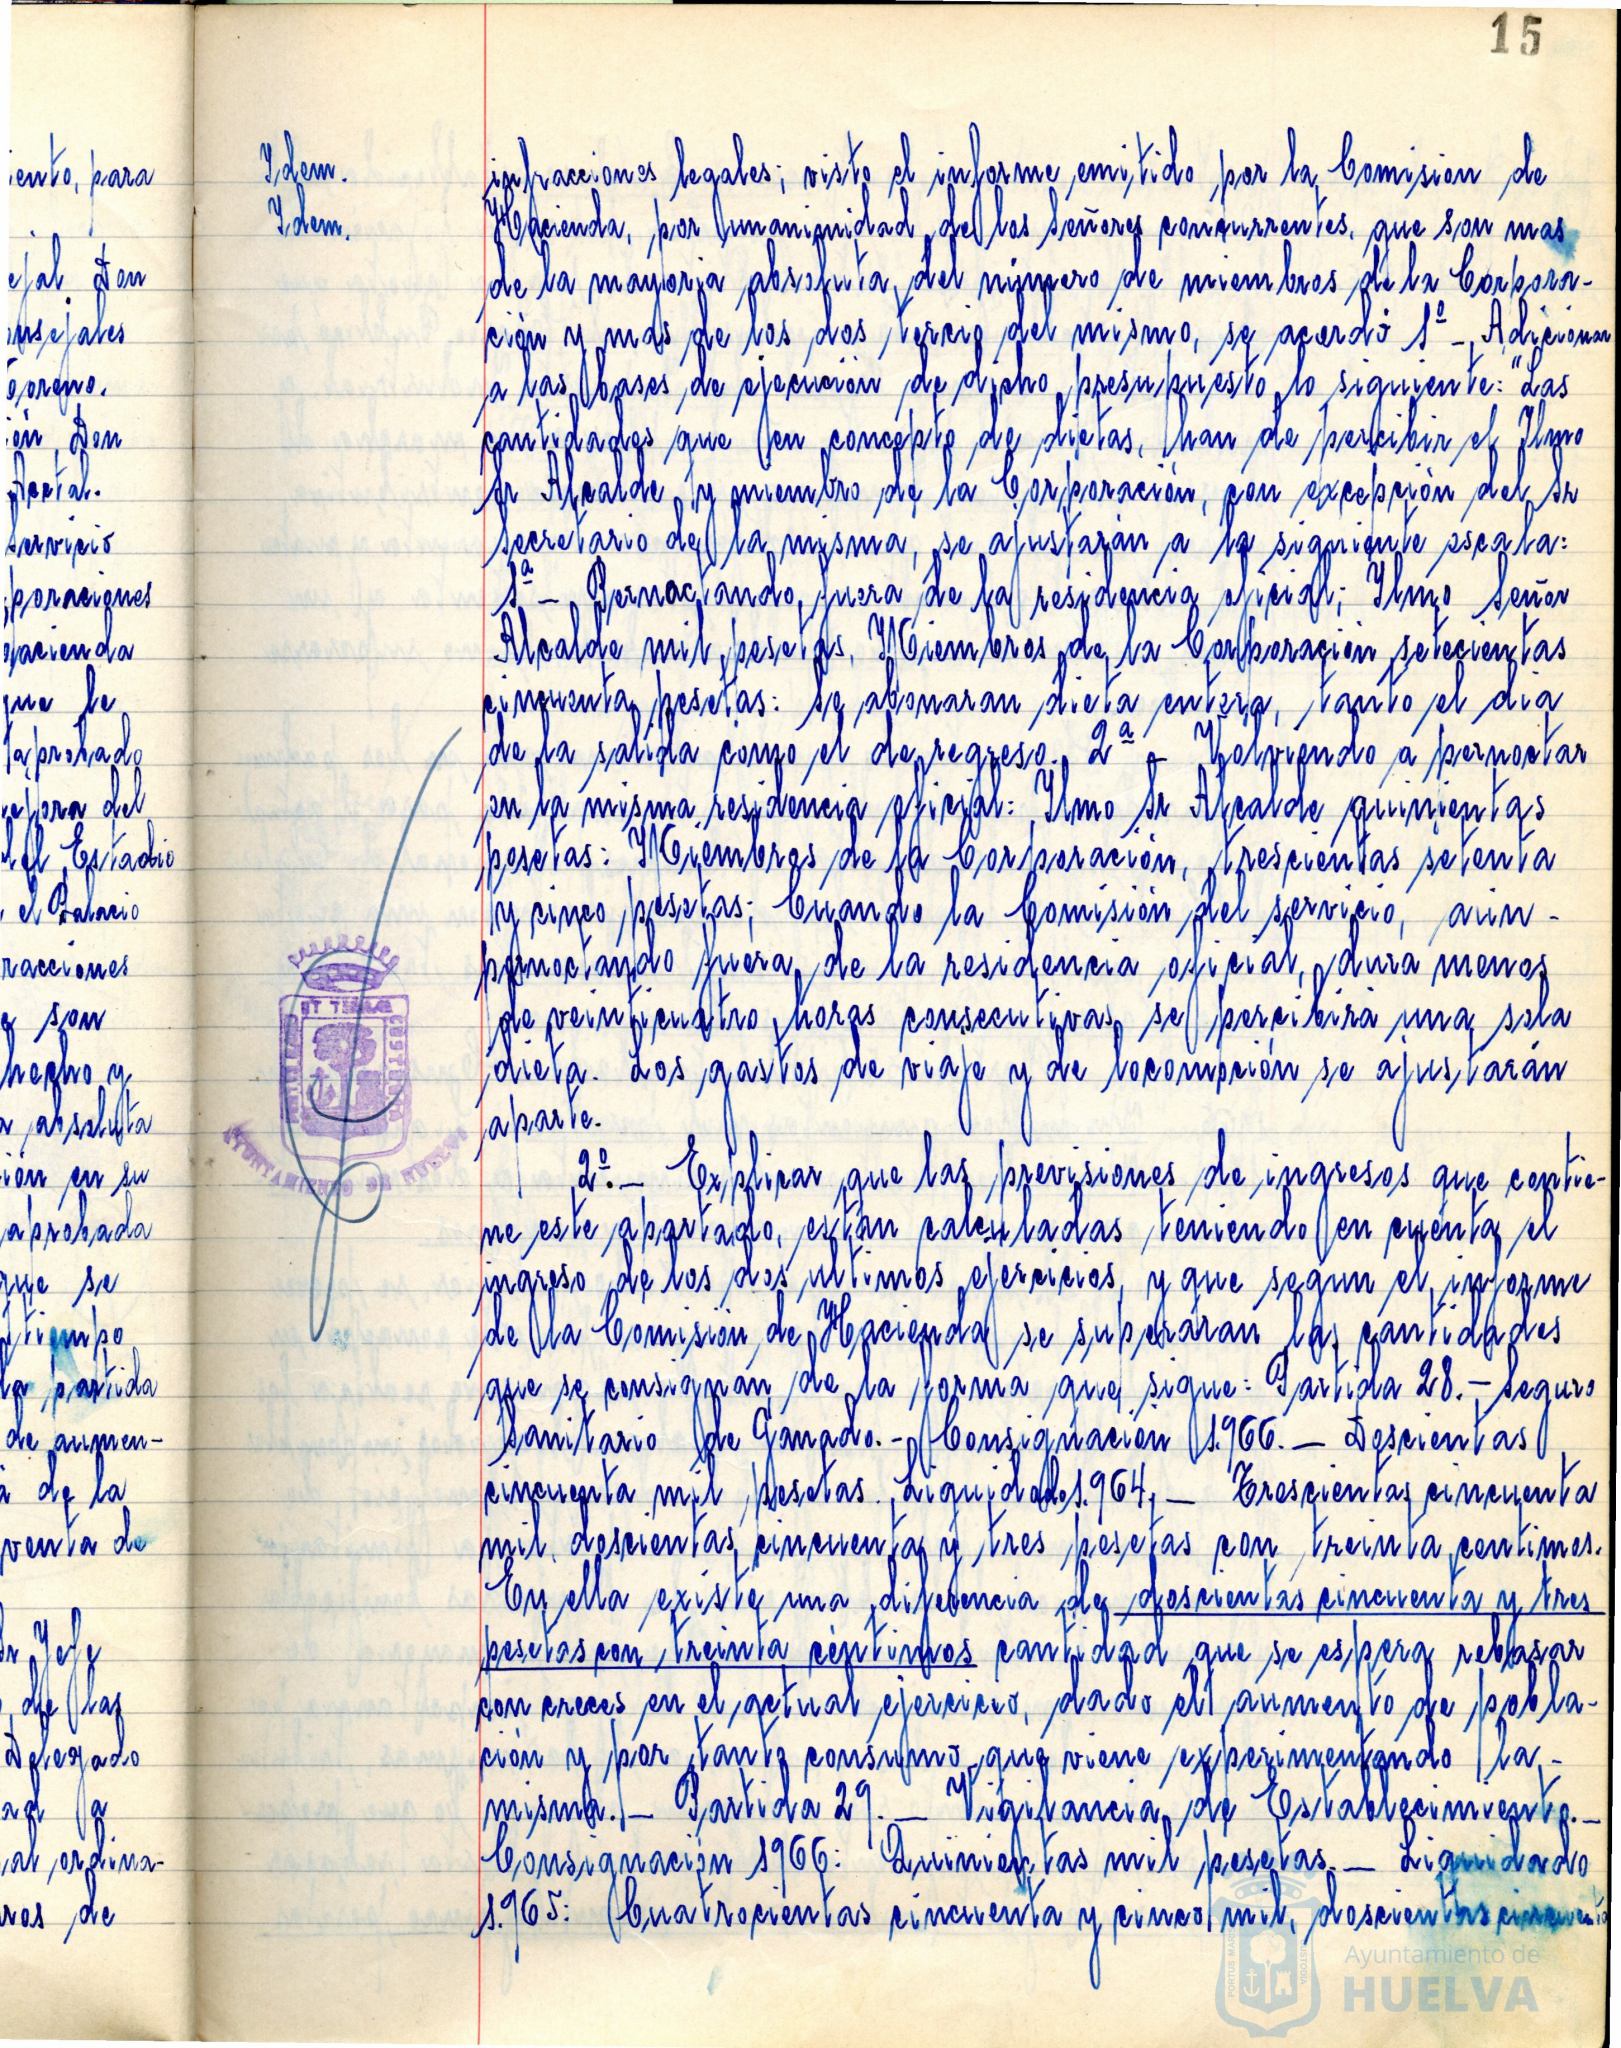 15
iento, para
ejal Don
onsejales
oreno.
ión, Don
Acctal.
servicio
poraciones
hacienda
que le
aprobado
epora del
del Estadio
, el Palacio
racciones
e son
hecho y
a absoluta
ión en su
aprobada
que se
tiempo
la partida
de aumen-
a de la
venta de
Sr Jefe
, de las
Delegado
ad a
al ordina-
ros de
Idem.
Idem.
infracciones legales; visto el informe emitido por la Comision de
Hacienda, por unanimidad de los señores concurrentes, que son mas
de la mayoria absoluta del número de miembros de la Corpora-
ción y mas de los dos tercio del mismo, se acordó 1º - Adicionar
a las bases de ejecución de dicho presupuesto lo siguiente: "Las
cantidades que en concepto de dietas, han de percibir el Ilmo
Sr Alcalde y miembro de la Corporación, con excepción del Sr
Secretario de la misma, se ajustarán a la siguiente escala:
1ª - Pernoctando fuera de la residencia oficial; Ilmo Señor
Alcalde mil pesetas, Miembros de la Corporación setecientas
cincuenta pesetas: se abonaran dieta entera, tanto el dia
de la salida como el de regreso. 2ª - Volviendo a pernoctar
en la misma residencia oficial: Ilmo Sr Alcalde quinientas
pesetas: Miembros de la Corporación, trescientas setenta
y cinco pesetas; Cuando la Comisión del servicio, aún -
pernoctando fuera de la residencia oficial, dura menos
de veinticuatro horas consecutivas, se percibira una sola
dieta. Los gastos de viaje y de locomoción se ajustarán
aparte.
2º.- Explicar que las previsiones de ingresos que contie-
ne este apartado, están calculadas teniendo en cuenta el
ingreso de los dos ultimos ejercicios, y que segun el informe
de la Comisión de Hacienda se superaran las cantidades
que se consignan de la forma que sigue: Partida 28.- Seguro
Sanitario de Ganado.- Consignación 1.966.- Doscientas
cincuenta mil pesetas. Liquidado 1.964,- Trescientas cincuenta
mil, doscientas cincuenta y tres pesetas con treinta centimos.
En ella existe una diferencia de doscientas cincuenta y tres
pesetas con treinta céntimos cantidad que se espera rebasar
con creces en el actual ejercicio, dado el aumento de pobla-
ción y por tanto consumo que viene experimentando la -
misma.- Partida 29.- Vigilancia de Establecimiento.-
Consignación 1966: Quinientas mil pesetas.- Liquidado
1.965: Cuatrocientas cincuenta y cinco mil, doscientas cincuenta
AYUNTAMIENTO DE HUELVA
Ayuntamiento de
HUELVA